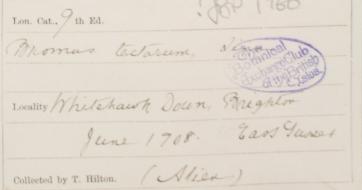 Lon. Cat., 9 th Ed.
Bromus tectorum,
Botanical
Exchange Club
of the British
Isles
Locality Whitehawk Down, Brighton
June 1908. East Sussex
Collected by T. Hilton. (Alien)